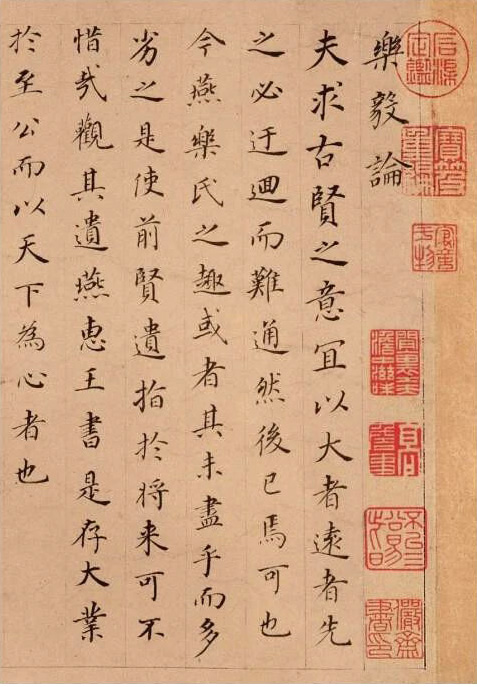 樂毅論
夫求古賢之意冝以大者遠者先
之必迂迴而難通然後已焉可也
今燕樂氏之趣或者其未盡乎而多
劣之是使前賢遺指扵将来可不
惜㢤觀其遺燕惠王書是存大業
扵至公而以天下為心者也
石渠定鑑
寶笈重編